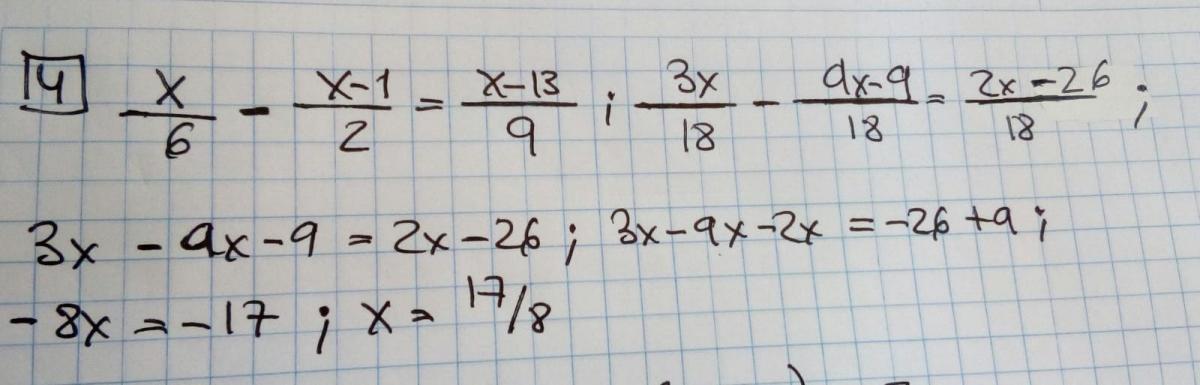 4 x/6 - x-1/2 = x-13/9 ; 3x/18 - 9x-9/18 = 2x-26/18 ;
3x - 9x - 9 = 2x - 26 ; 3x - 9x - 2x = -26 + 9 ;
- 8x = - 17 ; x = 17/8